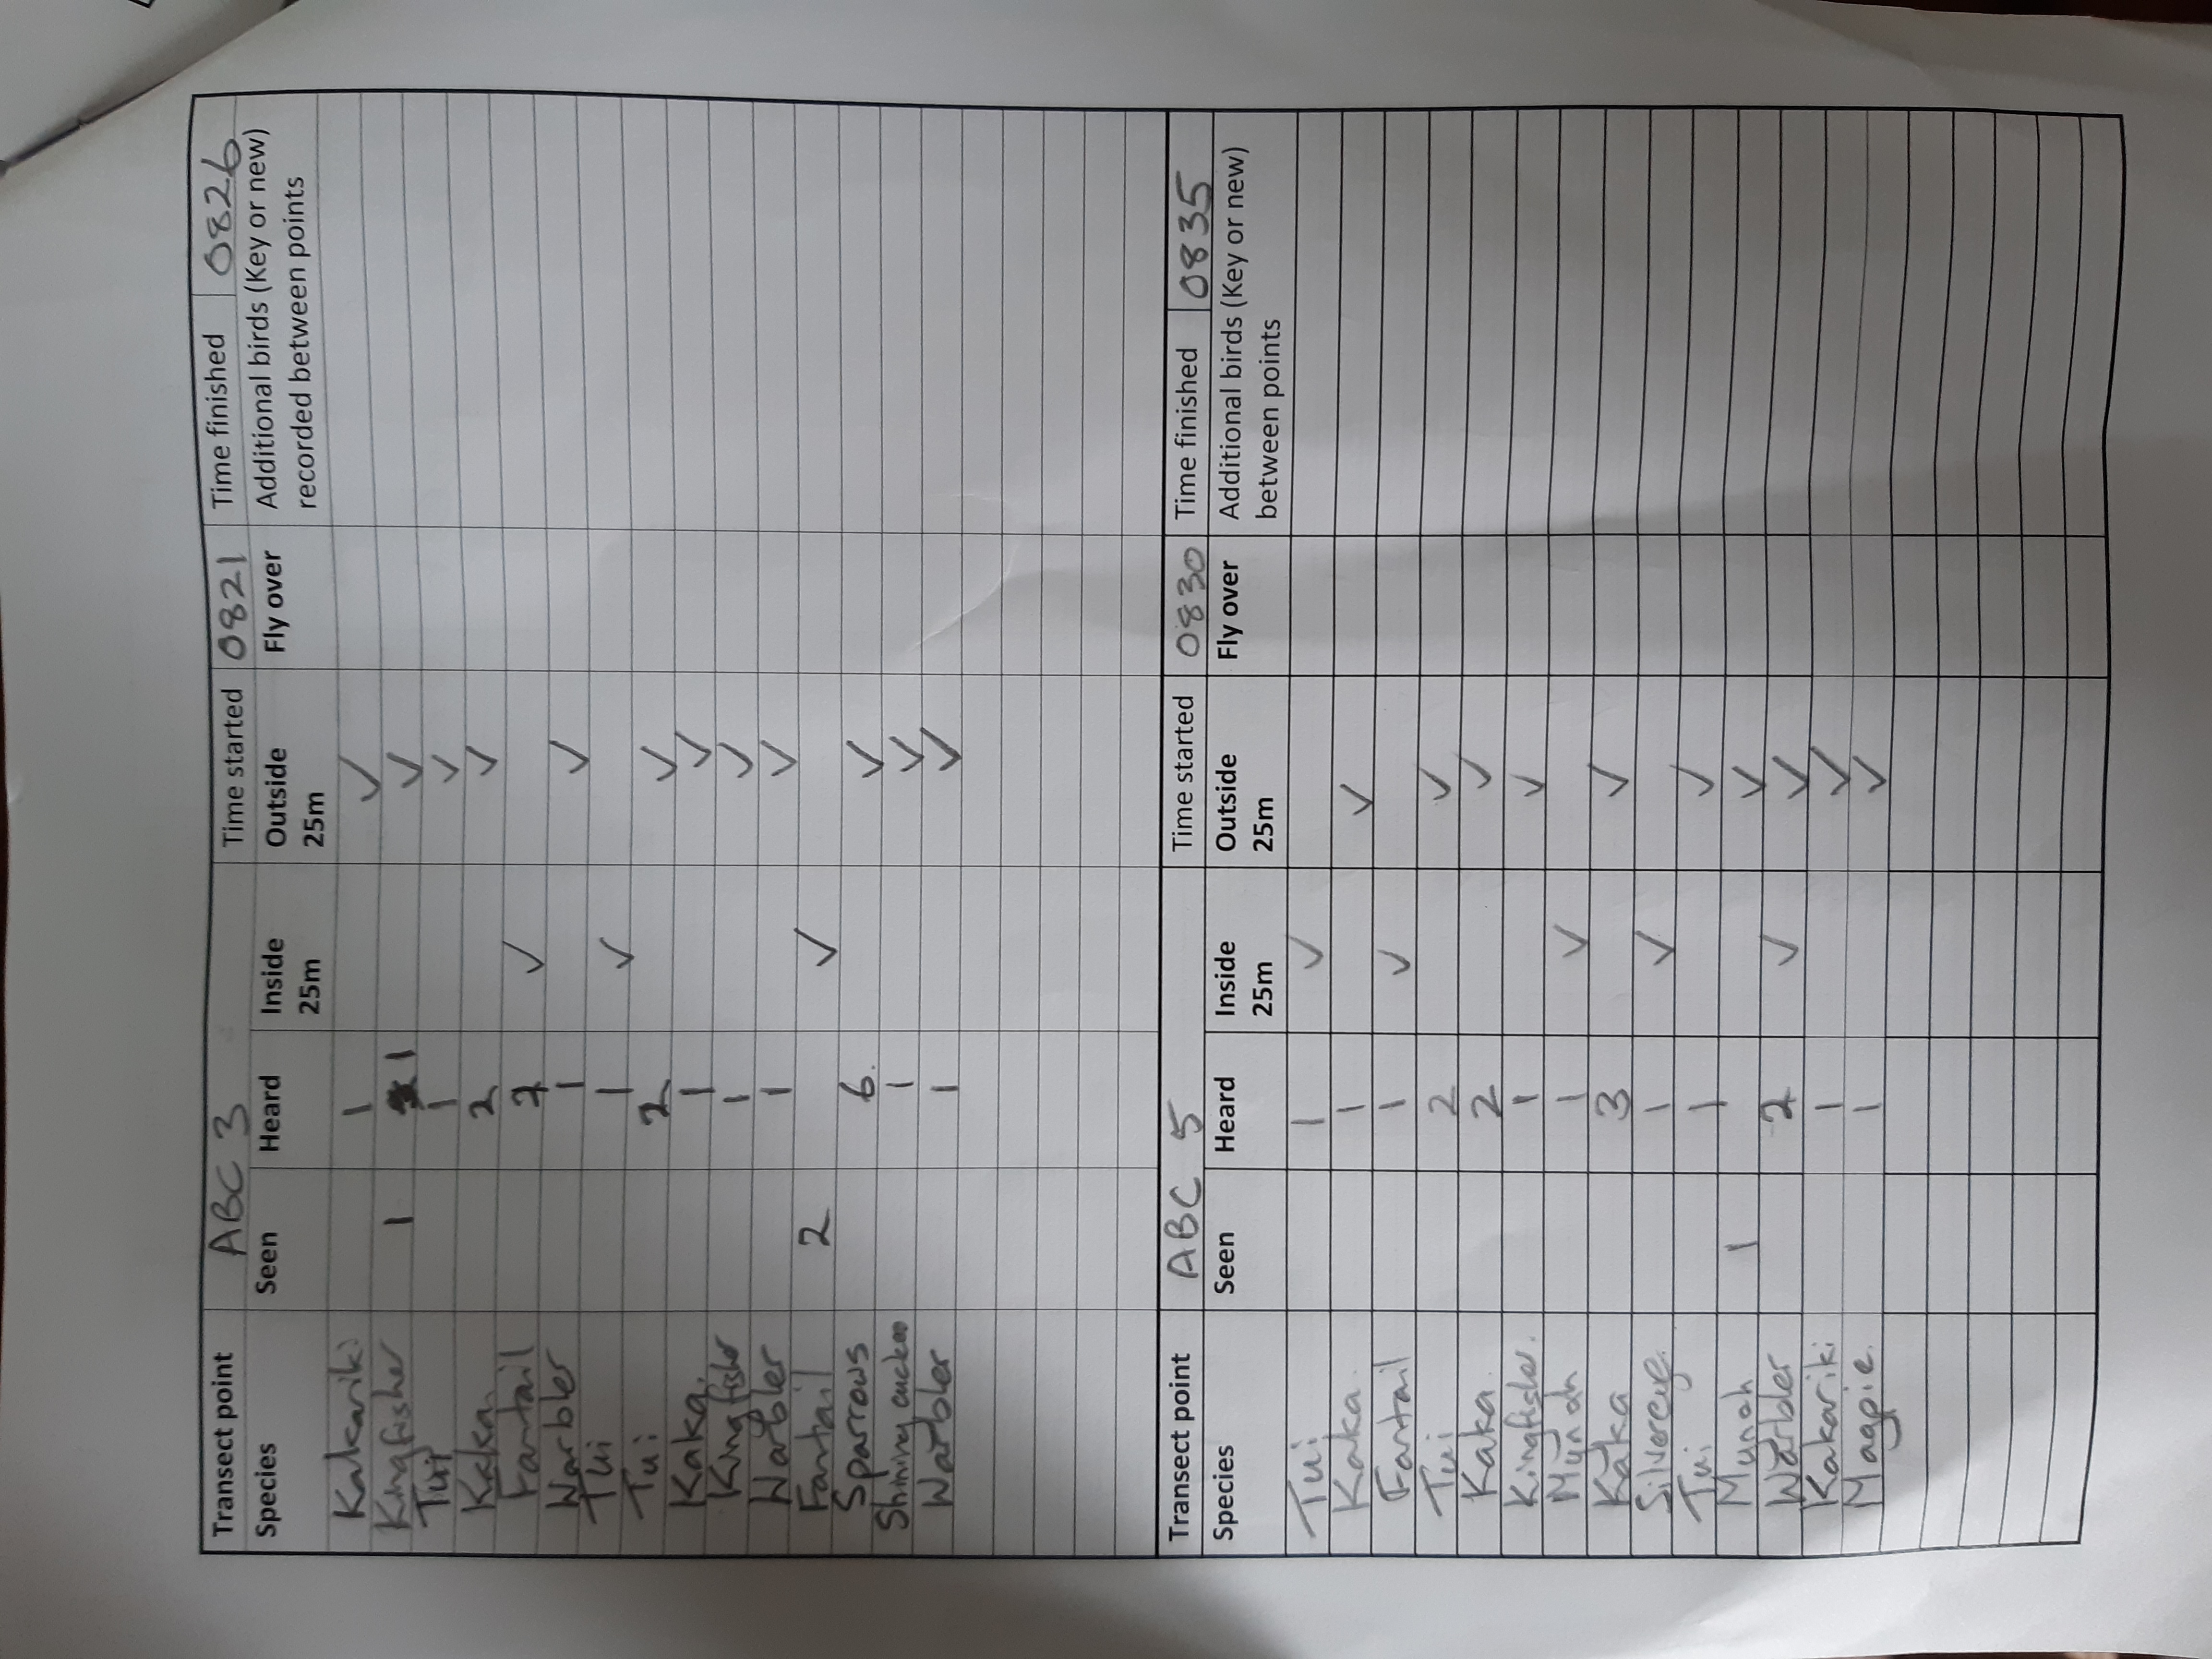 Transect point ABC 3 Time started 0821 Time finished 0826
Species Seen Heard Inside 25m Outside 25m Fly over Additional birds (Key or new) recorded between points
Kakariki 1 ✓
Kingfisher 1 1 ✓
Tui 1 ✓
Kaka 2 ✓
Fantail ✓
Warbler 1 ✓
Tui 1 ✓
Tui 2 ✓
Kaka. 1 ✓
Kingfisher 1 ✓
Warbler 1 ✓
Fantail 2 ✓
Sparrows 6. ✓
Shining cuckoo 1 ✓
Warbler 1 ✓
Transect point ABC 5 Time started 0830 Time finished 0835
Species Seen Heard Inside 25m Outside 25m Fly over Additional birds (Key or new) between points
Tui 1 ✓
Kaka 1 ✓
Fantail 1 ✓
Tui 2 ✓
Kaka 2 ✓
Kingfisher. 1 ✓
Mynah 1 ✓
Kaka 3 ✓
Silvereye. 1 ✓
Tui 1 ✓
Mynah 1 ✓
Warbler 2 ✓ ✓
Kakariki 1 ✓
Magpie. 1 ✓